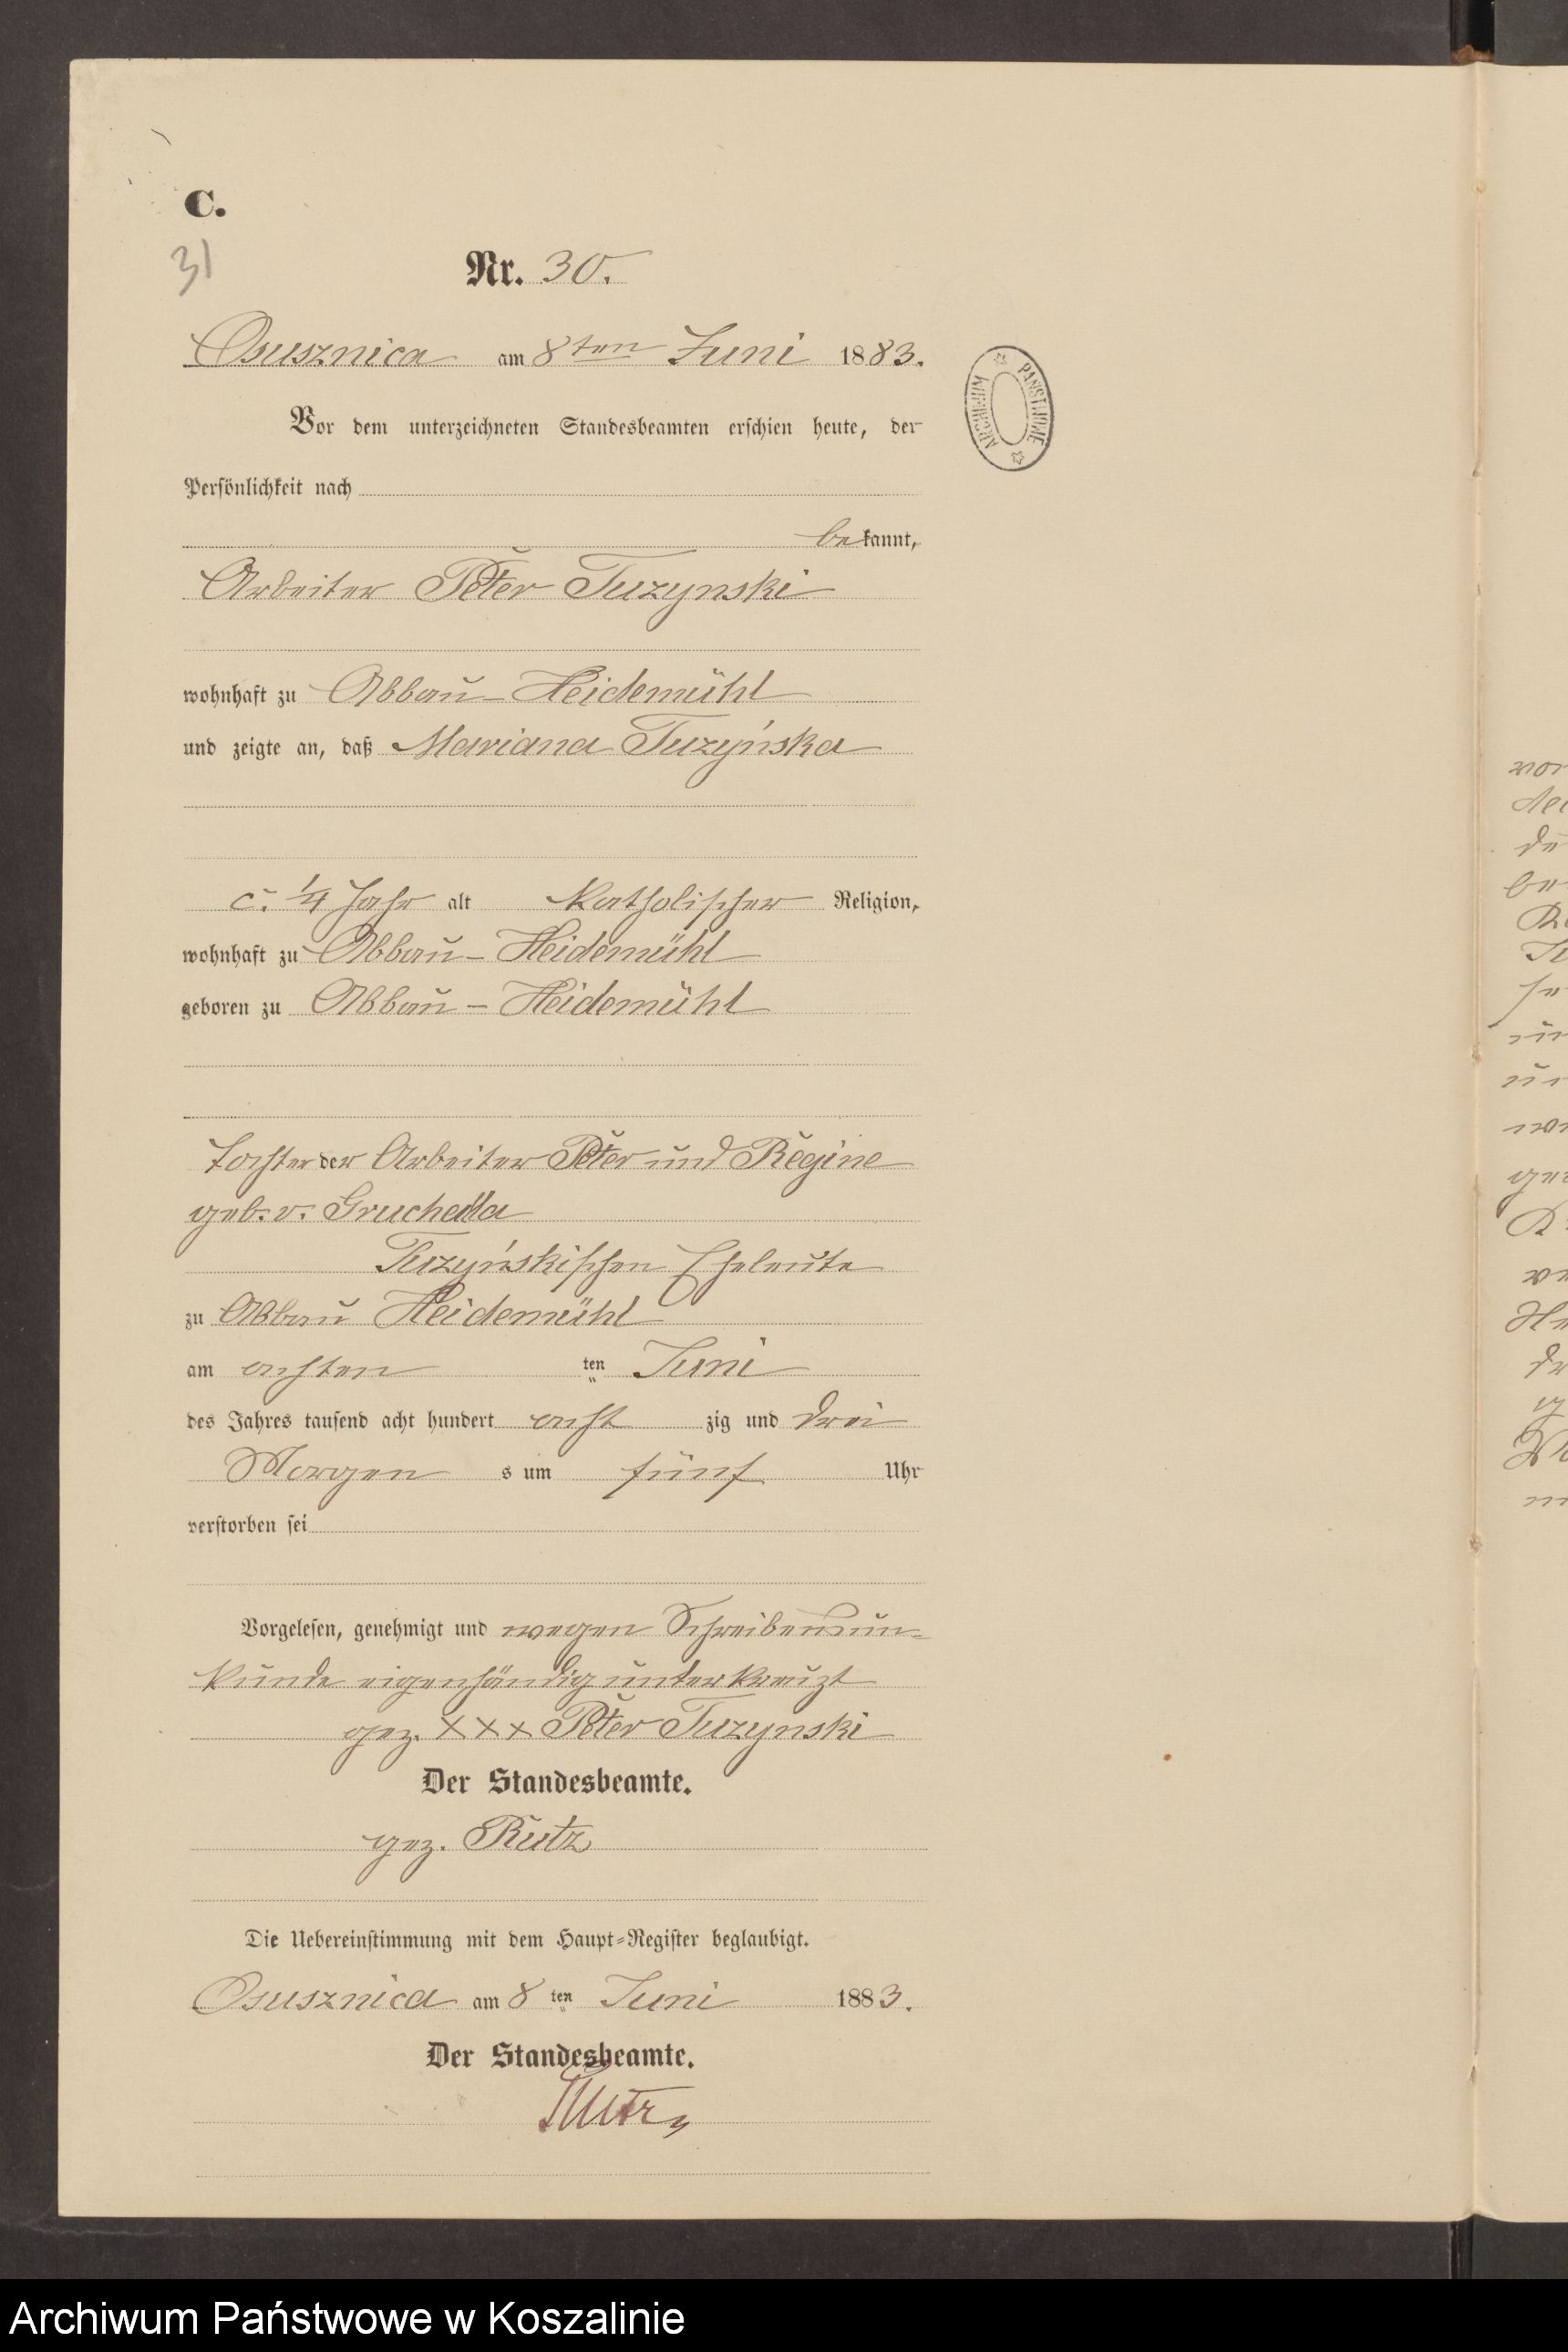 C.
31
Nr. 30.
Osusznica am 8ten Juni 1883.
Vor dem unterzeichneten Standesbeamten erschien heute, der
Persönlichkeit nach
bekannt,
Arbeiter Peter Tuzynski
wohnhaft zu Abbau-Heidemühl
und zeigte an, daß Mariana Tuzyńska
c. 1/4 Jahr alt katholischer Religion,
wohnhaft zu Abbau-Heidemühl
geboren zu Abbau-Heidemühl
Tochter der Arbeiter Peter und Regine
geb. v. Gruchalla
Tuzyńskischen Eheleute
zu Abbau Heidemühl
am achten ten Juni
des Jahres tausend acht hundert acht zig und drei
Morgen s um fünf Uhr
verstorben sei
Vorgelesen, genehmigt und wegen Schreibensun-
kunde eigenhändig unterkreuzt
gez. XXX Peter Tuzynski
Der Standesbeamte.
gez. Rutz
Die Uebereinstimmung mit dem Haupt-Register beglaubigt.
Osusznica am 8 ten Juni 1883.
Der Standesbeamte.
Rutz
ARCHIWUM PAŃSTWOWE
Archiwum Państwowe w Koszalinie